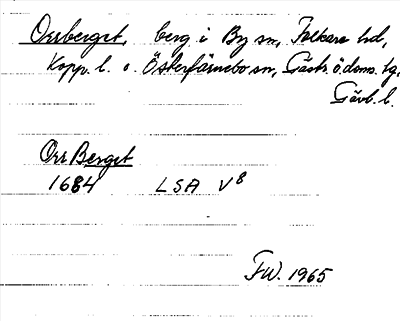 Orrberget, berg i By sn, Folkare hd,
Kopp. l. o. Österfärnebo sn, Gästr. ö. doms. tg,
Gävl. l.
Orr Berget
1684 LSA V8
FW. 1965